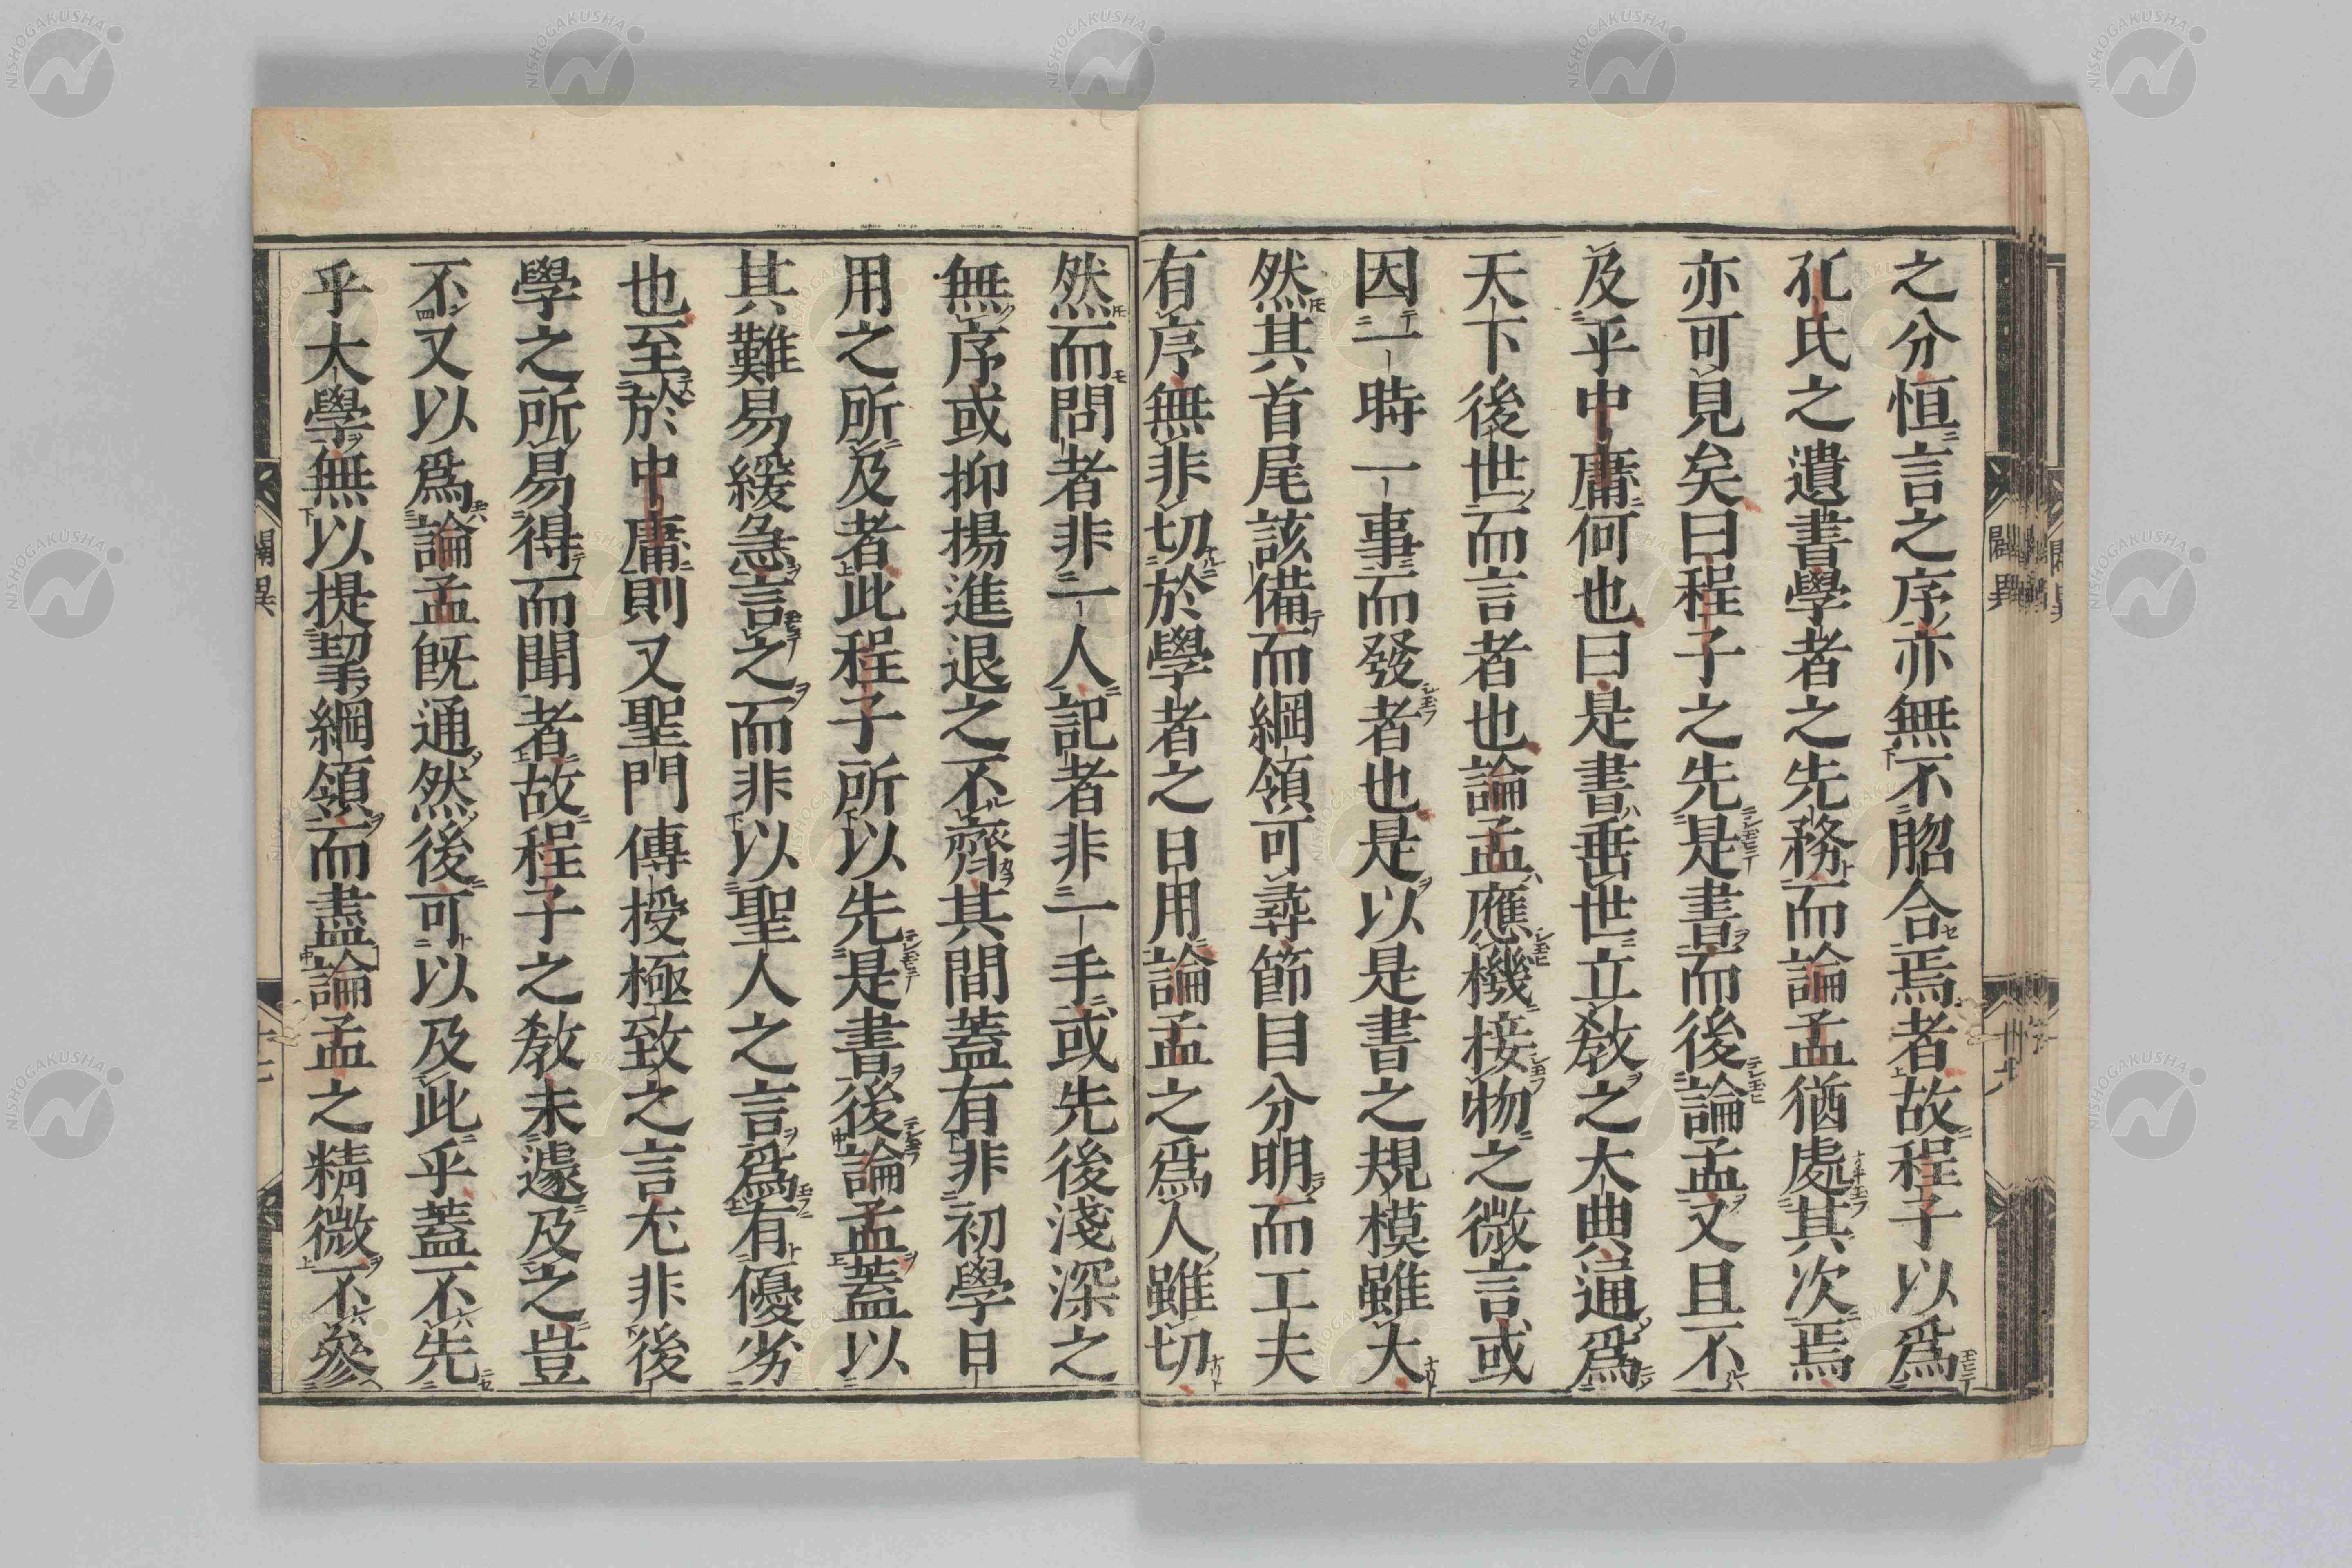 之分恒言之序亦無不脗合焉者故程子以爲
孔氏之遺書學者之先務而論孟猶處其次焉
亦可見矣曰程子之先是書而後論孟又且不
及乎中庸何也曰是書垂世立教之大典通爲
天下後世而言者也論孟應機接物之微言或
因一時一事而發者也是以是書之規模雖大
然其首尾該備而綱領可尋節目分明而工夫
有序無非切於學者之日用論孟之爲人雖切
然而問者非一人記者非一手或先後淺深之
無序或抑揚進退之不齊其間蓋有非初學日
用之所及者此程子所以先是書後論孟蓋以
其難易緩急言之而非以聖人之言爲有優劣
也至於中庸則又聖門傳授極致之言尤非後
學之所易得而聞者故程子之教未遽及之豈
不又以爲論孟既通然後可以及此乎蓋不先
乎大學無以提挈綱領而盡論孟之精微不參
闢異